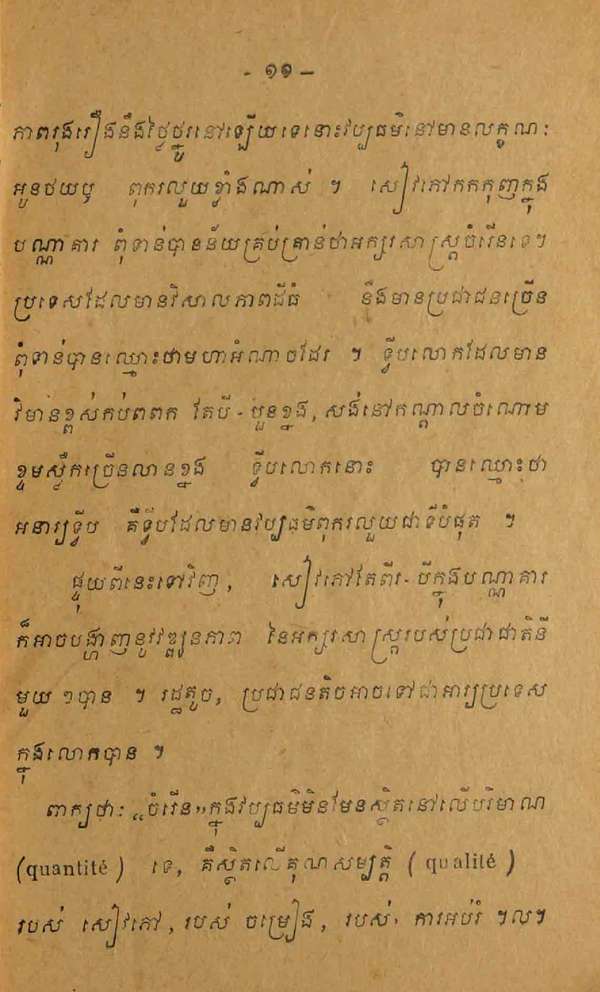 - ១១ –
ភាពរុងរឿងនឹងថ្លៃថ្នូរនៅឡើយទេនោះវប្បធម៌នៅមានលក្ខណៈ
អួនថយឬ ពុករលួយខ្លាំងណាស់ ។ សៀវភៅកកកុញក្នុង
បណ្ណាគារ ពុំទាន់បានន័យគ្រប់គ្រាន់ថាអក្សរសាស្ត្រចំរើនទេ។
ប្រទេសដែលមានវិសាលភាពដ៏ធំ នឹងមានប្រជាជនច្រើន
ពុំទាន់បានឈ្មោះថាមហាអំណាចដែរ ។ ទ្វីបលោកដែលមាន
វិមានខ្ពស់កប់ពពក តែបី - បួនខ្នង, សង់នៅកណ្ដាលចំណោម
ខ្ទមស្លឹកច្រើនលានខ្នង ទ្វីបលោកនោះ បានឈ្មោះថា
អនារ្យទ្វីប គឺទ្វីបដែលមានវប្បធម៌ពុករលួយជាទីបំផុត ។
ផ្ទុយពីនេះទៅវិញ, សៀវភៅតែពីរ - បីក្នុងបណ្ណាគារ
ក៏អាចបង្ហាញនូវវឌ្ឍនភាព នៃអក្សរសាស្ត្ររបស់ប្រជាជាតិនី
មួយ ៗបាន ។ រដ្ឋតូច, ប្រជាជនតិចអាចទៅជាអារ្យប្រទេស
ក្នុងលោកបាន ។
ពាក្យថា: „ចំរើន»ក្នុងវប្បធម៌មិនមែនស្ថិតនៅលើបរិមាណ
(quantité) ទេ, គឺស្ថិតលើគុណសម្បត្តិ (qualité)
របស់ សៀវភៅ, របស់ ចម្រៀង, របស់ ការអប់រំ ។ល។